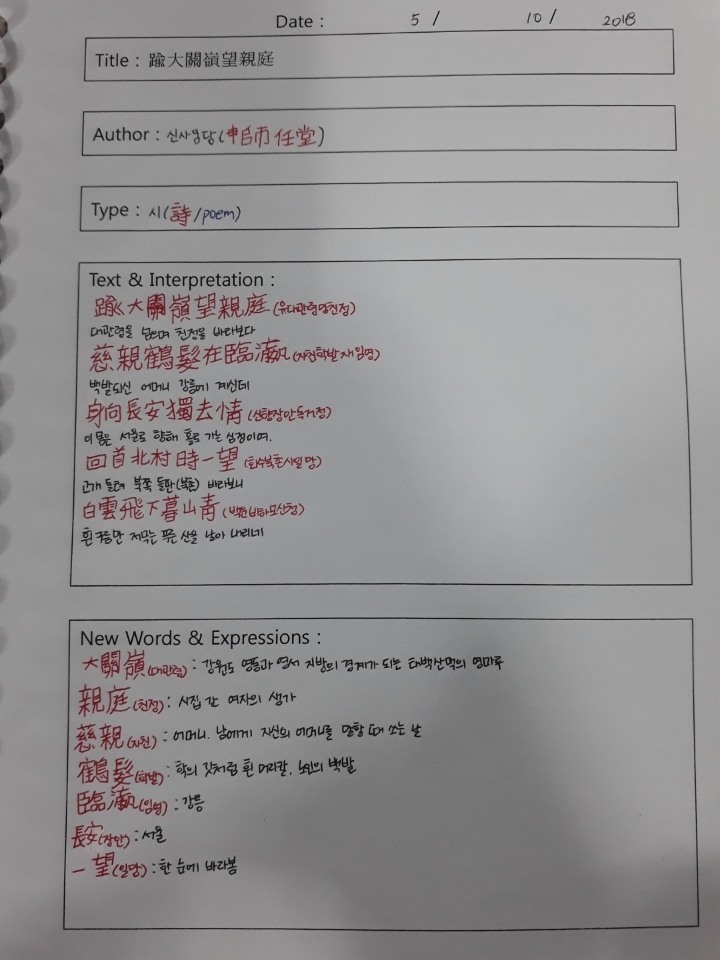 Date : 5 / 10 / 2018
Title : 踰大關嶺望親庭
Author : 신사임당(申師任堂)
Type : 시(詩/poem)
Text & Interpretation :
踰大關嶺望親庭 (유대관령망친정)
대관령을 넘으며 친정을 바라보다
慈親鶴髮在臨瀛 (자친학발재임영)
백발되신 어머니 강릉에 계신데
身向長安獨去情 (신향장안독거정)
이 몸은 서울로 향해 홀로 가는 심정이여.
回首北村時一望 (회수북촌시일망)
고개 돌려 북쪽 들판(북촌) 바라보니
白雲飛下暮山靑 (백운비하모산청)
흰 구름만 저무는 푸른 산을 날아 내리네
New Words & Expressions :
大關嶺(대관령) : 강원도 영동과 영서 지방의 경계가 되는 태백산맥의 영마루
親庭(친정) : 시집 간 여자의 생가
慈親(자친) : 어머니. 남에게 자신의 어머니를 말할 때 쓰는 말
鶴髮(학발) : 학의 깃처럼 흰 머리칼, 노인의 백발
臨瀛(임영) : 강릉
長安(장안) : 서울
一望(일망) : 한 눈에 바라봄